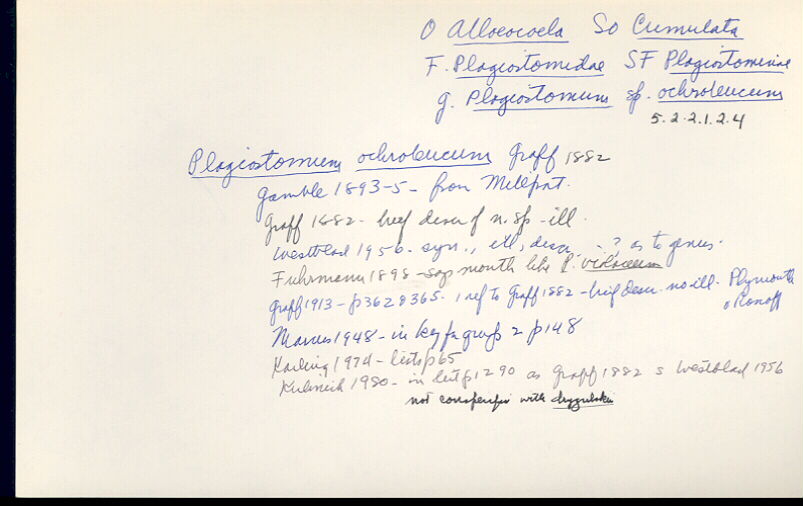 O Alloeocoela So Cumulata
F. Plagiostomidae SF Plagiostominae
g. Plagiostomum sp. ochroleucum
5.2.2.1.2.4
Plagiostomum ochroleucum Graff 1882
Gamble 1893-5 - from Millport.
Graff 1882 - brief descr of n. sp - ill.
Westblad 1956 - syn., ill, descr - ? as to genus.
Fuhrmann 1898 - says mouth like P.
Graff 1913 - p362 & 365. 1 ref to Graff 1882 - brief descr. no ill. Plymouth
Roscoff
Marcus 1948 - in key for group 2 p148
Karling 1974 - lists p65
1980 - in list p1290 as Graff 1882 s Westblad 1956
not conspecific with